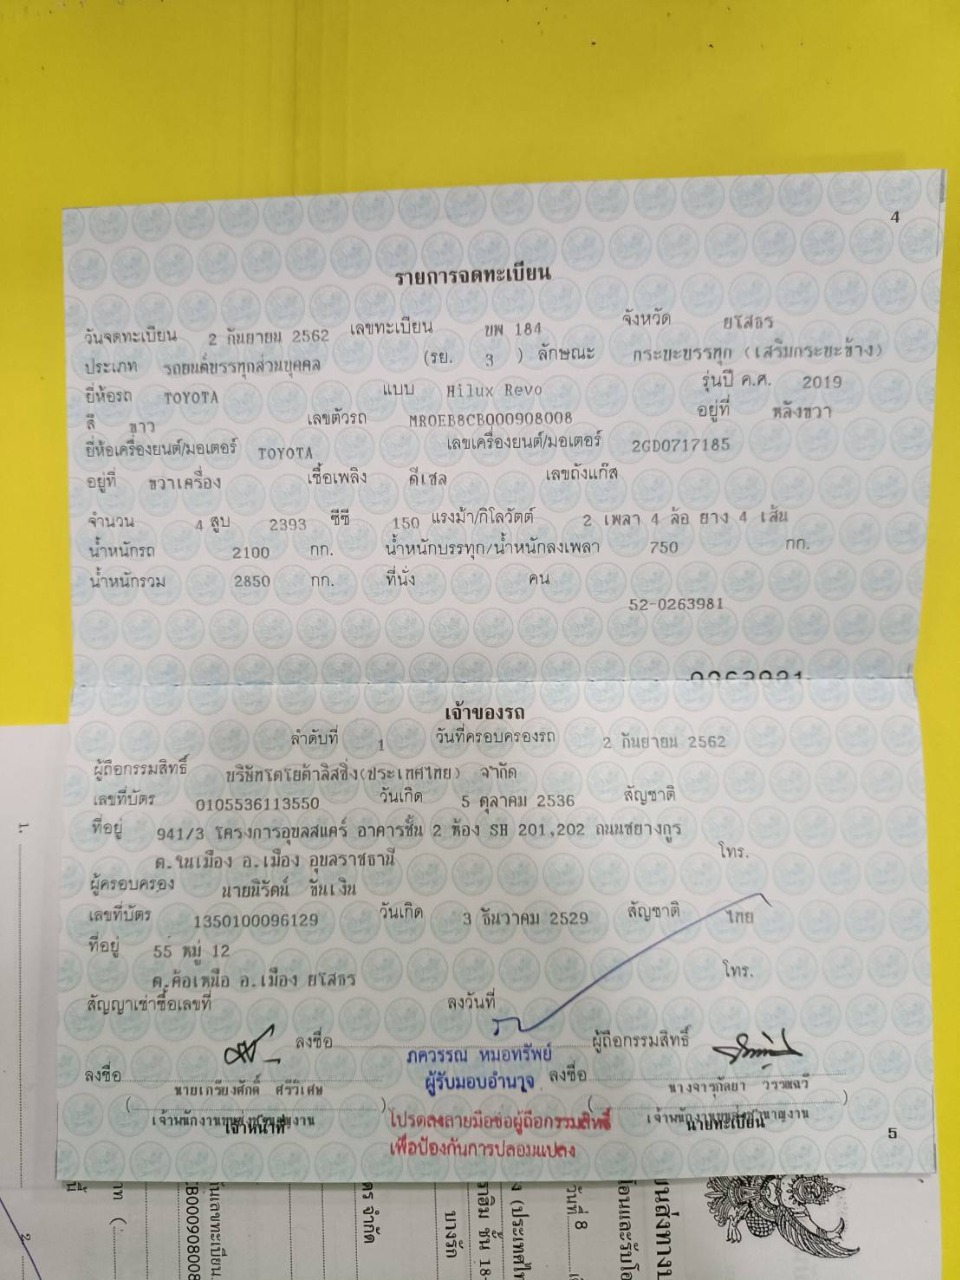 4
รายการจดทะเบียน
วันจดทะเบียน 2 กันยายน 2562 เลขทะเบียน บพ 184 จังหวัด ยโสธร
ประเภท รถยนต์บรรทุกส่วนบุคคล (รย. 3 ) ลักษณะ กระบะบรรทุก (เสริมกระบะข้าง)
ยี่ห้อรถ TOYOTA แบบ Hilux Revo รุ่นปี ค.ศ. 2019
สี ขาว เลขตัวรถ MR0EB8CB000908008 อยู่ที่ หลังขวา
ยี่ห้อเครื่องยนต์/มอเตอร์ TOYOTA เลขเครื่องยนต์/มอเตอร์ 2GD0717185
อยู่ที่ ขวาเครื่อง เชื้อเพลิง ดีเซล เลขถังแก๊ส
จำนวน 4 สูบ 2393 ซีซี 150 แรงม้า/กิโลวัตต์ 2 เพลา 4 ล้อ ยาง 4 เส้น
น้ำหนักรถ 2100 กก. น้ำหนักบรรทุก/น้ำหนักลงเพลา 750 กก.
น้ำหนักรวม 2850 กก. ที่นั่ง คน
52-0263981
เจ้าของรถ
ลำดับที่ 1 วันที่ครอบครองรถ 2 กันยายน 2562
ผู้ถือกรรมสิทธิ์ บริษัทโตโยต้าลิสซิ่ง(ประเทศไทย) จำกัด
เลขที่บัตร 0105536113550 วันเกิด 5 ตุลาคม 2536 สัญชาติ
ที่อยู่ 941/3 โครงการอุบลสแคร์ อาคารชั้น 2 ห้อง SH 201,202 ถนนชยางกูร
ต.ในเมือง อ.เมือง อุบลราชธานี โทร.
ผู้ครอบครอง นายนิรัตน์ ขันเงิน
เลขที่บัตร 1350100096129 วันเกิด 3 ธันวาคม 2529 สัญชาติ ไทย
ที่อยู่ 55 หมู่ 12
ต.ค้อเหนือ อ.เมือง ยโสธร โทร.
สัญญาเช่าซื้อเลขที่ ลงวันที่
ลงชื่อ ผู้ถือกรรมสิทธิ์
ภควรรณ หมอทรัพย์
ผู้รับมอบอำนาจ
ลงชื่อ ลงชื่อ
นายเกรียงศักดิ์ ศรีวิเศษ
เจ้าหน้าที่ นายทะเบียน
โปรดลงลายมือชื่อผู้ถือกรรมสิทธิ์
เพื่อป้องกันการปลอมแปลง
5